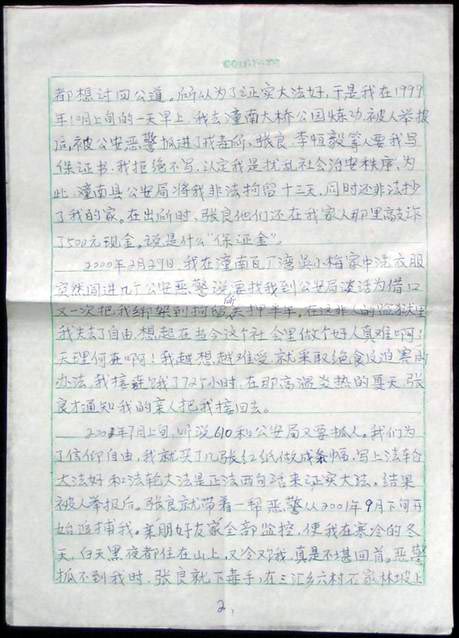 都想讨回公道。所以为了证实大法好,于是我在1999
年10月上旬的一天早上,我去潼南大桥公园炼功,被人举报
后,被公安恶警抓进了戒毒所,张良,李恒毅等人要我写
保证书,我拒绝不写,认定我是扰乱社会治安秩序,为
此,潼南县公安局将我非法拘留十三天,同时还非法抄
了我的家。在出所时,张良他们还在我家人那里敲诈
了500元现金。说是什么“保证金”。
2000年2月29日,我在潼南瓦厂湾吴小梅家中洗衣服
突然闯进几个公安恶警说要找我到公安局谈话为借口
又一次把我绑架到拘留所关押半年,在这非人的监狱里
我失去了自由,想起在当今这个社会里做个好人真难啊!
天理何在啊!我越想越难受,就采取绝食反迫害的
办法,我接近饿了72小时,在那高温炎热的夏天,张
良才通知我的亲人把我接回去。
2001年9月上旬,听说610和公安局又要抓人。我们为
了信仰自由,我就买了几张红纸做成条幅,写上法轮
大法好和法轮大法是正法两句话来证实大法。结果
被人举报后。张良就带着一帮恶警从2001年9月下旬开
始追捕我。亲朋好友家全部监控,使我在寒冷的冬
天,白天黑夜都住在山上,又冷又饿,真是不堪回首。恶警
抓不到我时,张良就下毒手,在三汇乡六村石家林坡上
2.